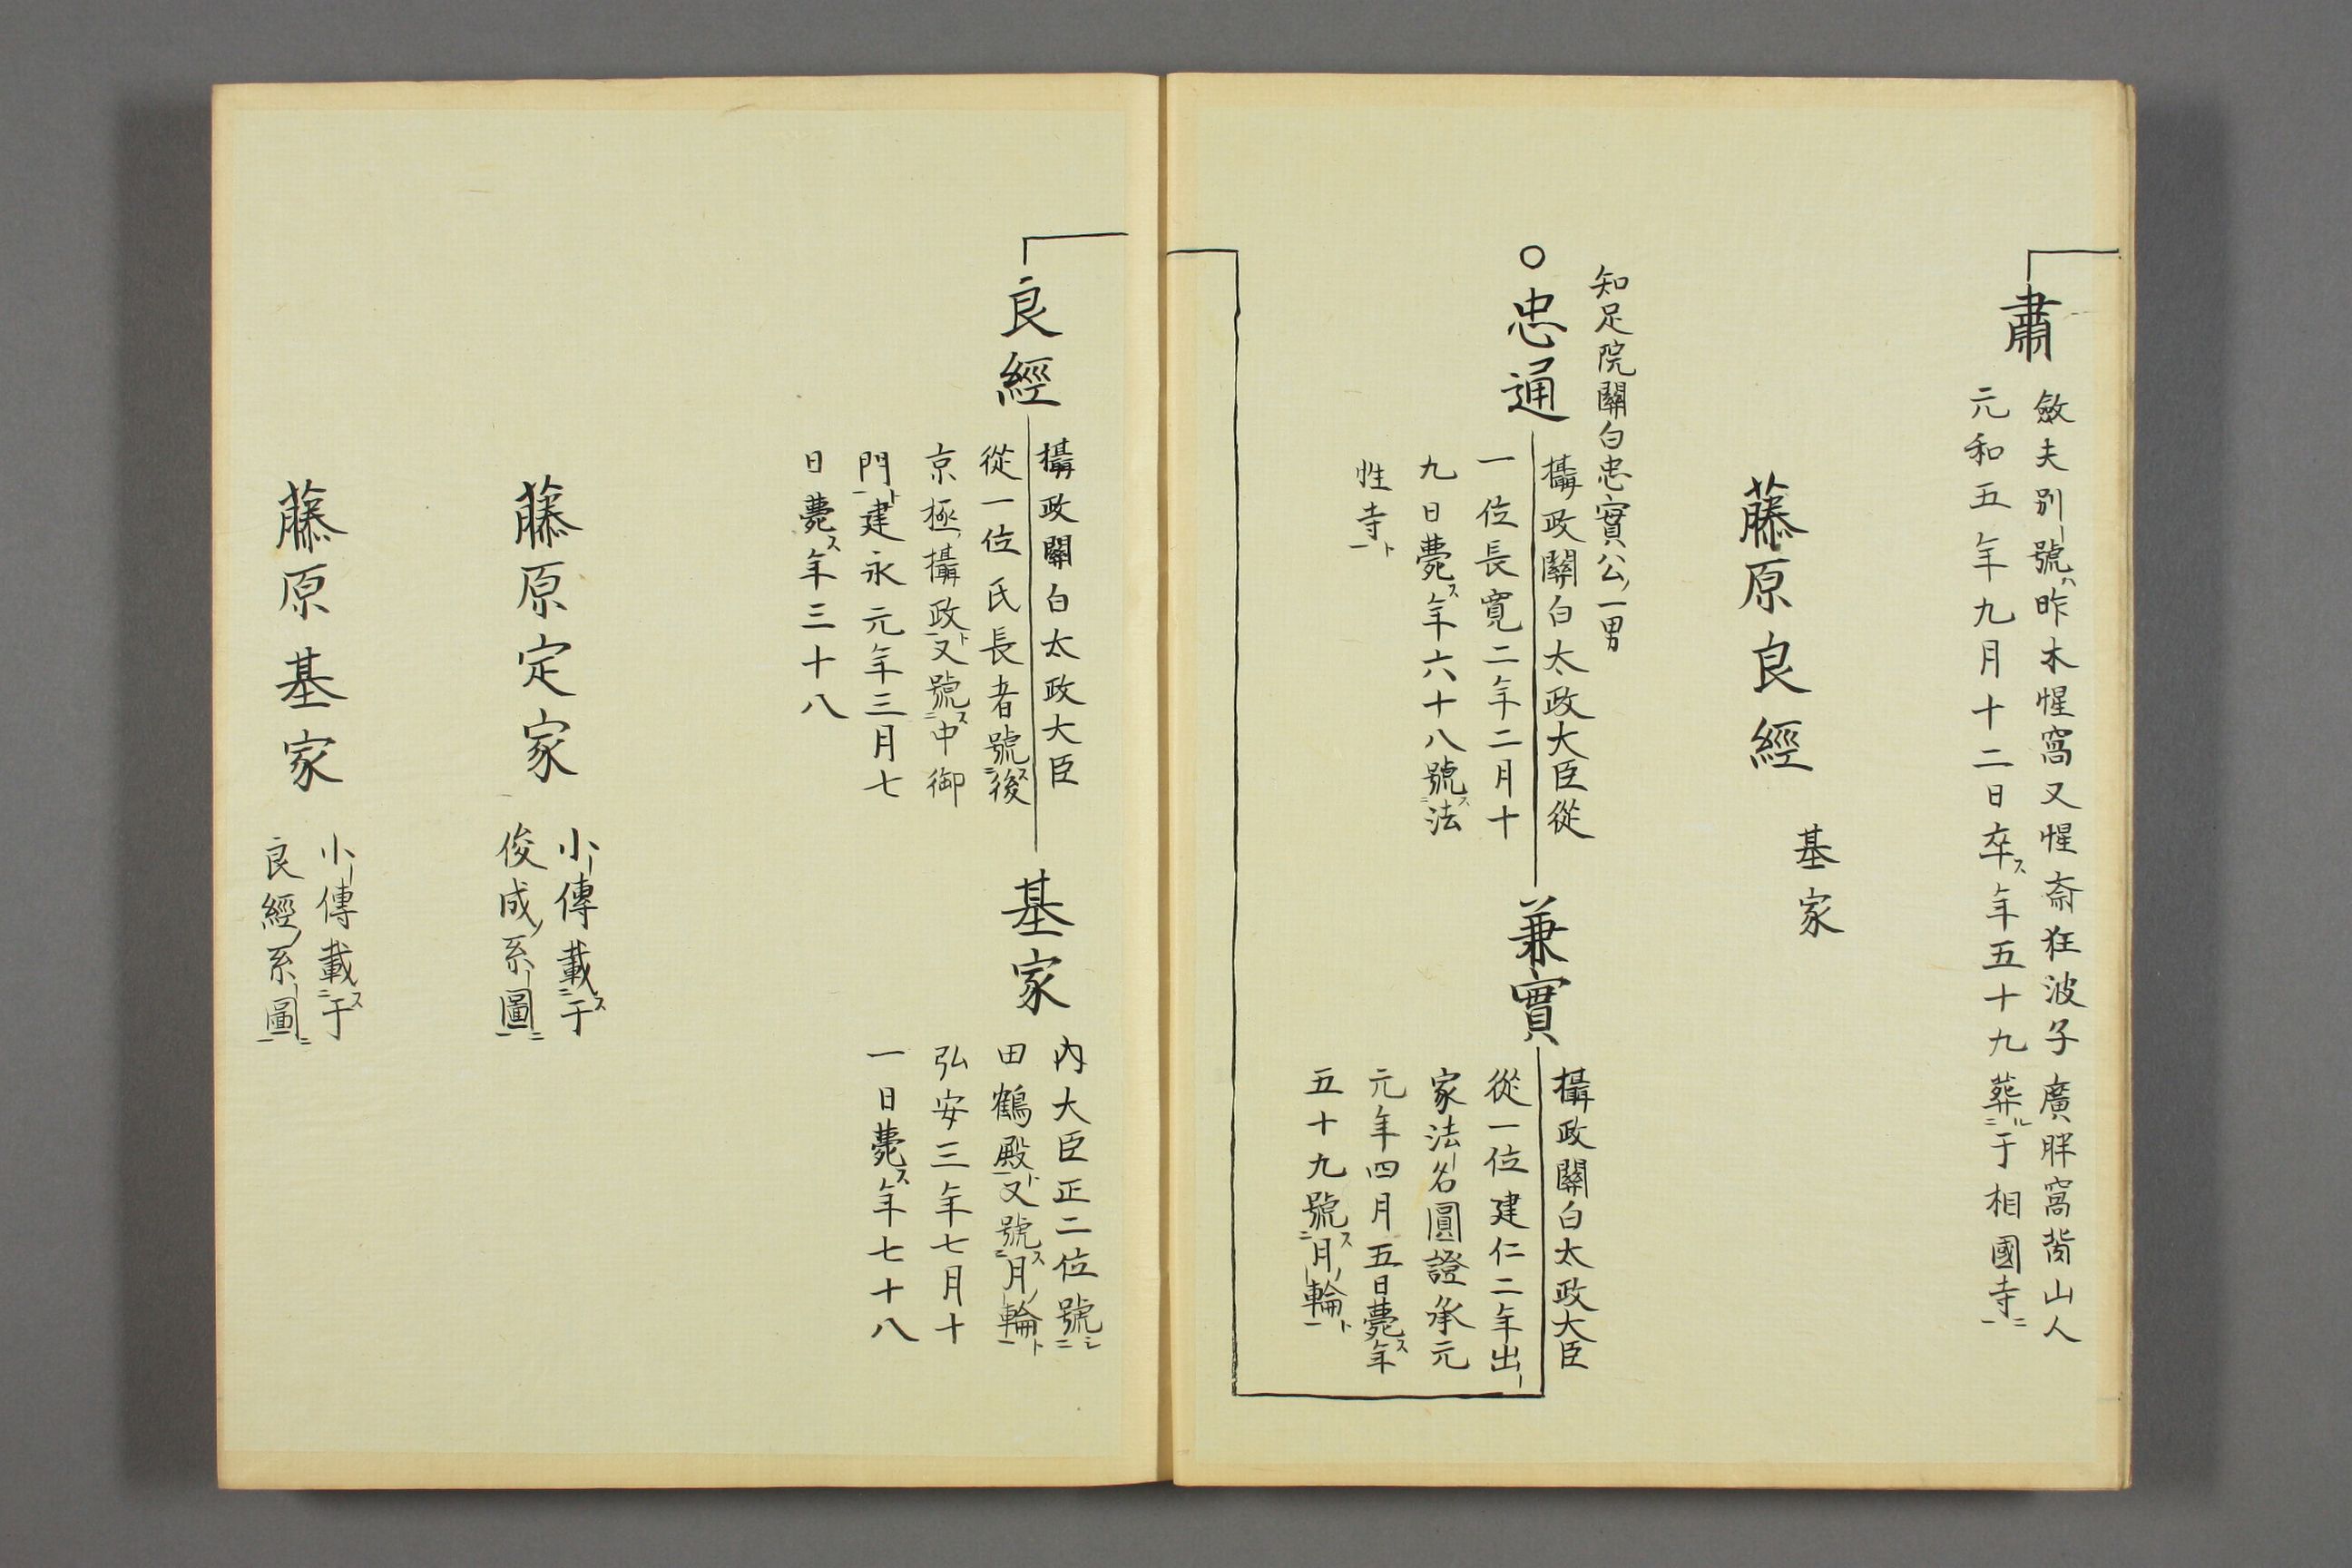 肅
斂夫別號ハ昨木惺窩又惺斎狂波子廣胖窩背山人
元和五年九月十二日卒ス年五十九葬ル二于相國寺一ニ
藤原良經
基家
知足院關白忠實公ノ一男
○忠通
攝政關白太政大臣從
一位長寛二年二月十
九日薨ス年六十八號ス二法
性寺一ト
兼實
攝政關白太政大臣
從一位建仁二年出
家法名圓證承元
元年四月五日薨ス年
五十九號ス二月ノ輪一ト
良經
攝政關白太政大臣
從一位氏長者號ス二後
京極ノ攝政一ト又號ス二中御
門一ト建永元年三月七
日薨ス年三十八
基家
内大臣正二位號シ二
田鶴殿一ト又號ス二月ノ輪一ト
弘安三年七月十
一日薨ス年七十八
藤原定家
小傳載ス二于
俊成ノ系圖一ニ
藤原基家
小傳載ス二于
良經ノ系圖一ニ